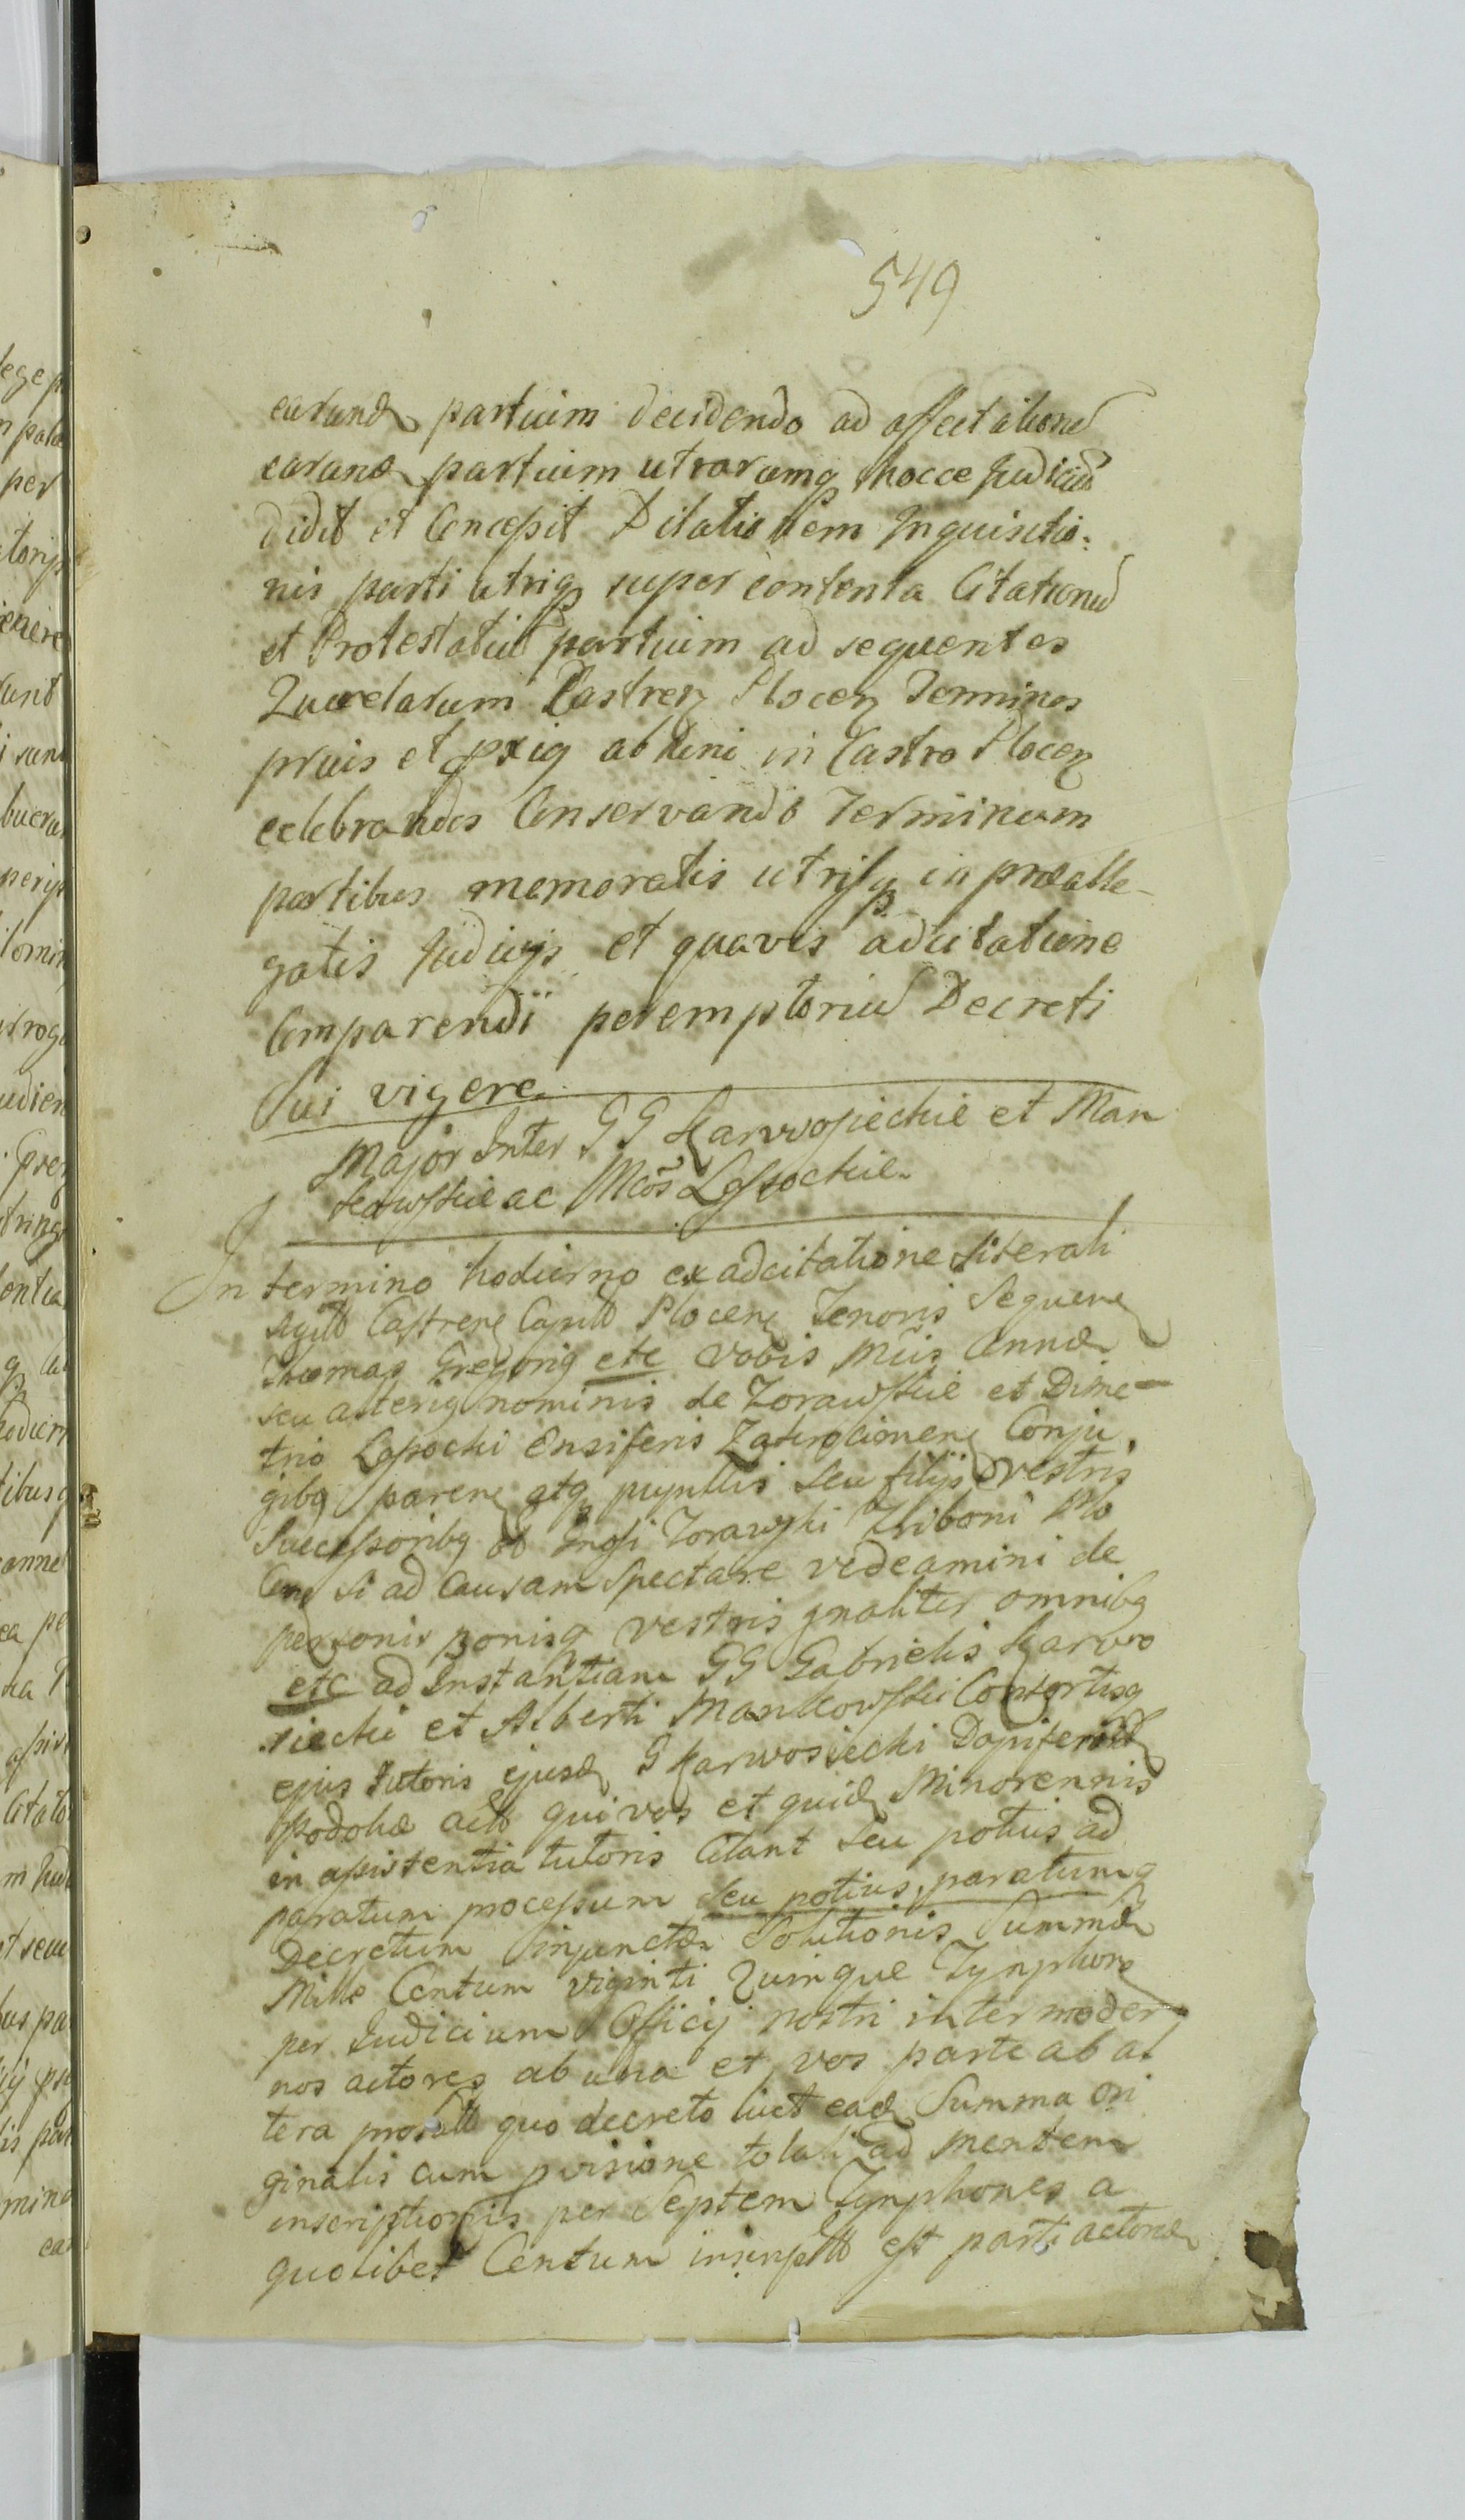 549
earund partium decidendo ad affectationem
earund partium utrarumq hocce Judicium
didit et Concessit Dilationem Inquisitio:
nis parti utriq super contenta Citationum
et Protestationum partium ad sequentes
Querelarum Castren Plocen Terminos
prius et ab heni in Castro Plocen
celebrandos Conservando Terminum
partibus memoratis utrisq in prealle-
gatis Judicijs et quavis adcitatione
Comparendi peremptorium Decreti
Sui vigere.
Major Inter GG Karwosieckie et Man
kowskie ac Mcos Lasockie.
In termino hodierno ex adcitatione literali
sigill Castren Capitl Plocen Tenoris Sequen
Thomas Gregorig etc vobis Mcis Annæ
seu alterig nominis de Zorawskie et Dime-
trio Lasocki Ensiferis Zakrocimen Conju
gibq paren atq pupillis seu filijs vestris
Successoribq Gnosi Zorawski Triboni Plo
Cen si ad Causam Spectare videamini de
personis bonisq vestris gnaliter omnibq
etc ad Instantiam GG Gabrielis Karwo
siecki et Alberti Mankowski Consortisq
ejus tutoris ejusd G Karwosiecki Dapiferid
Podoliæ actt qui vos et quid Minorennis
in assistentia tutoris Citant seu potius ad
paratum processum seu potius paratumq
Decretum injunctæ Solutionis Summæ
Mille Centum viginti Quinque Tynphon
per Judicium Officij nostri inter moder
nos actores ab una et vos parte ab al
tera prolatt quo decreto licet ead Summa ori
ginalis cum pvisione tolali ad mentem
inscriptionis per Septem Tynphones a
quolibet Centum inscriptt est parti actoreæ